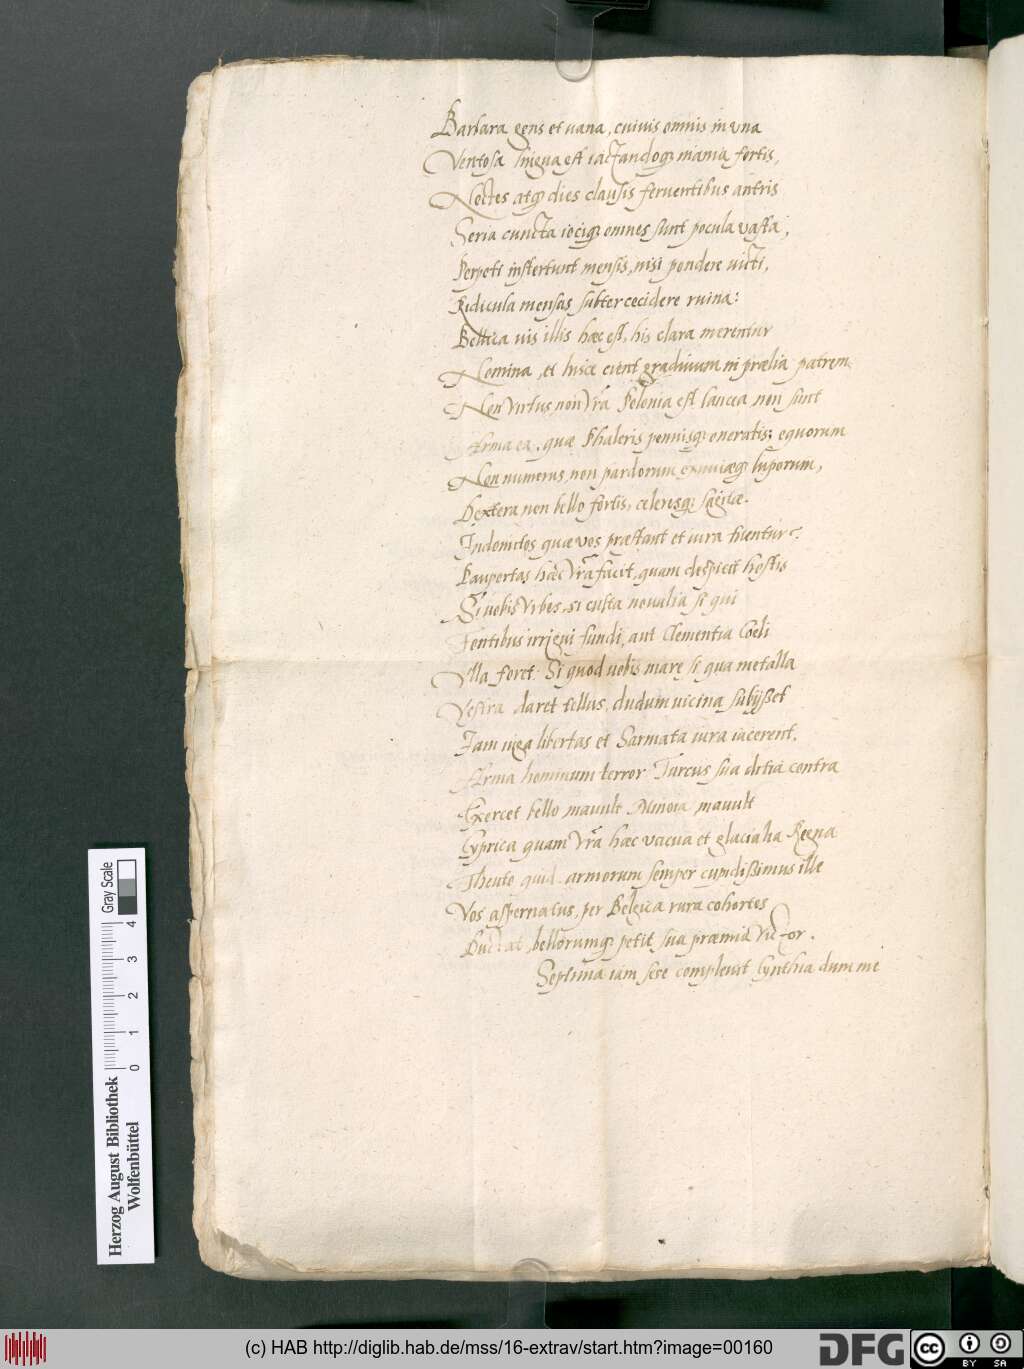 Barbara gens et uana, cuiuis omnis in una
Ventosa lingua est iactandoq; mania fortis,
Noctes atq; dies clausis feruentibus antris
Seria cuncta iociq; omnes sunt pocula vasta,
Perpeti instertunt mensis, nisi pondere uicti,
Ridicula mensas subter cecidere ruina:
Bellica uis illis hæc est, his clara merentur
Nomina, et hisce cient gradiuum in prælia patrem
Non Virtus non Vrã Polonia est lancea non sunt
Arma ea, quæ Phaleris pennisq; oneratis; equorum
Non numerus, non pardorum exuuiæq; luporum,
Dextera non bello fortis, celeresq; sagittæ.
Indomitos quæ vos præstant et iura tuentur?
Paupertas hæc Vrã facit, quam despicit hostis
Si uobis Vrbes, si culta noualia si qui
Fontibus irrigui fundi, aut Clementia Coeli
Vlla foret: Si quod uobis mare si qua metalla
Vestra daret tellus, dudum uicina subijsset
Jam iuga libertas et Sarmata iura iacerent.
Arma hominum terror Turcus sua contra
Exercet bello mauult Minoia mauult
Cyprica quam Vrã hæc vacua et glacialia Regna
Theuto quid armorum semper cupidissimus ille
Vos aspernatus, per Belgica rura cohortes
Ductat, bellorumq; petit sua præmia Victor.
Septima iam sese compleuit Cynthia dum me
Gray Scale
0 1 2 3 4
Herzog August Bibliothek
Wolfenbüttel
(c) HAB http://diglib.hab.de/mss/16-extrav/start.htm?image=00160
DFG
cc
BY SA